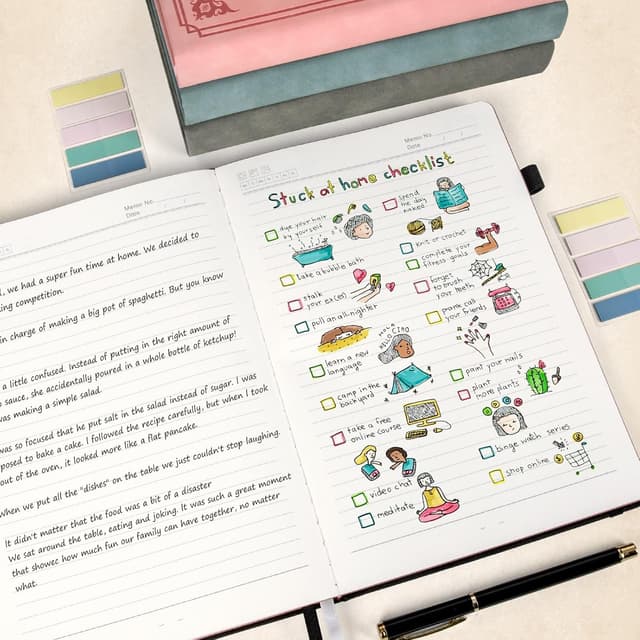 Memo No.
Date / /
, we had a super fun time at home. We decided to
ing competition.
in charge of making a big pot of spaghetti. But you know
a little confused. Instead of putting in the right amount of
sauce, she accidentally poured in a whole bottle of ketchup!
was making a simple salad.
was so focused that he put salt in the salad instead of sugar. I was
posed to bake a cake. I followed the recipe carefully, but when I took
out of the oven, it looked more like a flat pancake.
When we put all the "dishes" on the table we just couldn't stop laughing.
It didn't matter that the food was a bit of a disaster
We sat around the table, eating and joking. It was such a great moment
that showec how much fun our family can have together, no matter
what.
Memo No.
Date / /
Stuck at home checklist
dye your hair
by yourself
take a bubble bath
stalk
your ex(es)
pull an allnighter
learn a new
language
HOLA
HELLO
CIAO
camp in the
backyard
take a free
online course
video chat
meditate
spend
the day
naked
knit or crochet
complete your
fitness goals
forget
to brush
your teeth
prank call
your friends
paint your nails
plant
more plants
binge watch series
shop online